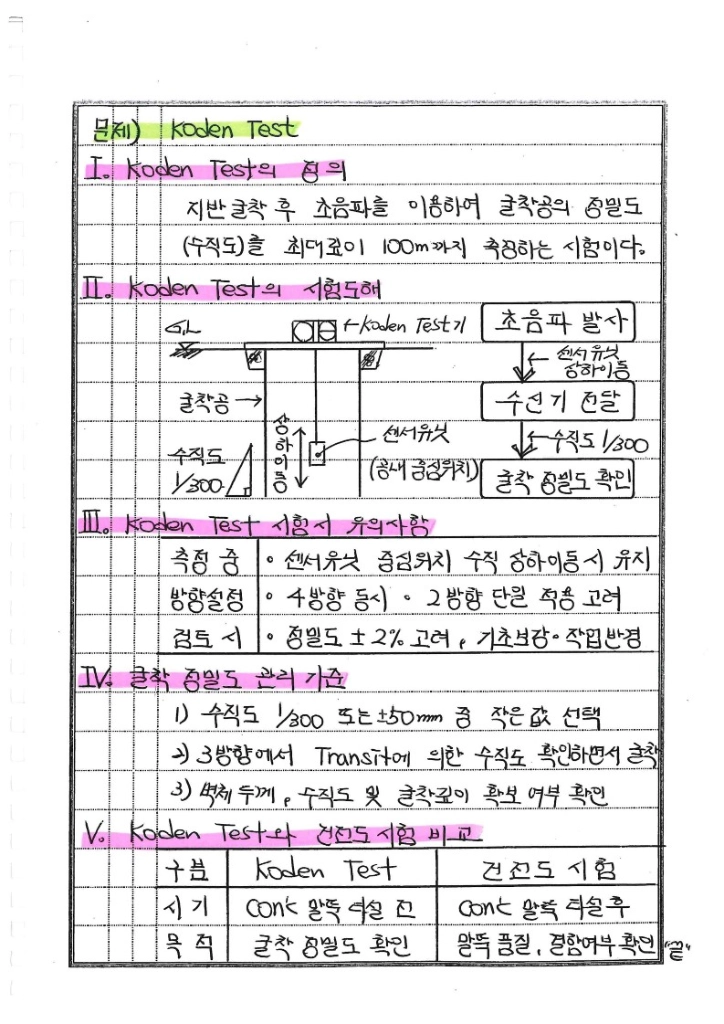 문제) Koden Test
I. Koden Test의 정의
지반굴착 후 초음파를 이용하여 굴착공의 정밀도
(수직도)를 최대깊이 100m까지 측정하는 시험이다.
II. Koden Test의 시험도해
G.L
Koden Test기
굴착공
상하이동
센서유닛
(공내 중심위치)
수직도
1/300
초음파 발사
센서유닛
상하이동
수신기 전달
수직도 1/300
굴착 정밀도 확인
III. Koden Test 시험시 유의사항
측정 중 • 센서유닛 중심위치 수직 상하이동시 유지
방향설정 • 4방향 동시 • 2방향 단일 적용 고려
검토 시 • 정밀도 ± 2% 고려, 기초보강·작업반경
IV. 굴착 정밀도 관리 기준
1) 수직도 1/300 또는 ±50mm 중 작은 값 선택
2) 3방향에서 Transit에 의한 수직도 확인하면서 굴착
3) 벽체 두께, 수직도 및 굴착깊이 확보 여부 확인
V. Koden Test와 건전도시험 비교
구분 Koden Test 건전도 시험
시기 Con't 말뚝 타설 전 Con't 말뚝 타설 후
목적 굴착 정밀도 확인 말뚝 품질, 결함여부 확인 "끝"